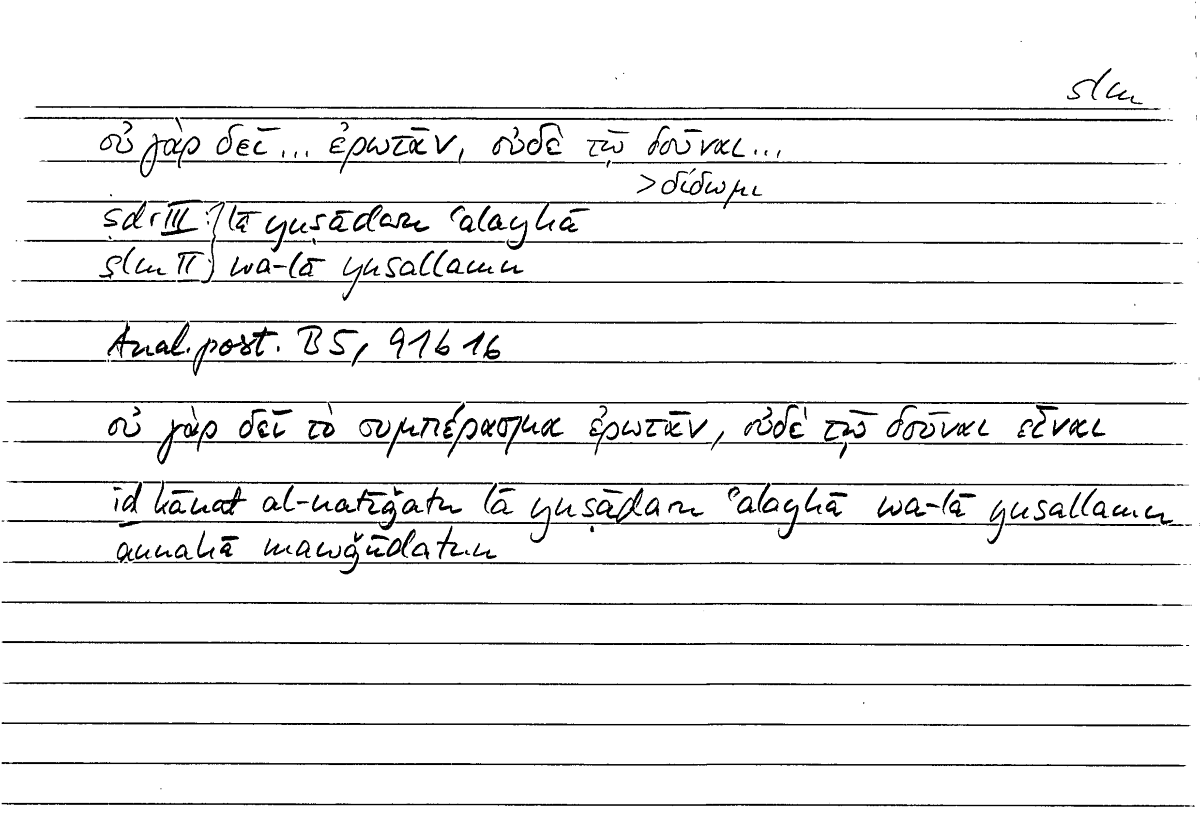 slm
οὐ γὰρ δεῖ... ἐρωτᾶν, οὐδὲ τῷ δοῦναι...
>δίδωμι
ṣdr III } lā yuṣādaru ʿalayhā
slm II } wa-lā yusallamu
Anal. post. B5, 91b16
οὐ γὰρ δεῖ τὸ συμπέρασμα ἐρωτᾶν, οὐδὲ τῷ δοῦναι εἶναι
iḏ kānat al-natīǧatu lā yuṣādaru ʿalayhā wa-lā yusallamu
annahā mawǧūdatun